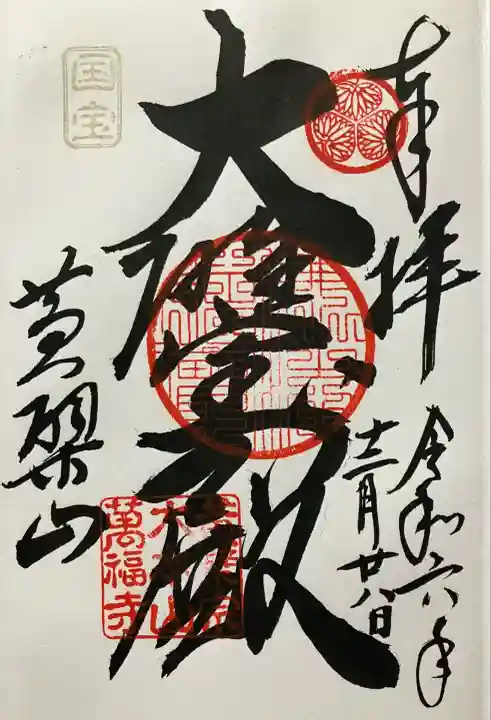 奉拝
令和六年
十二月廿八日
大雄宝殿
黄檗山
国宝
萬福寺